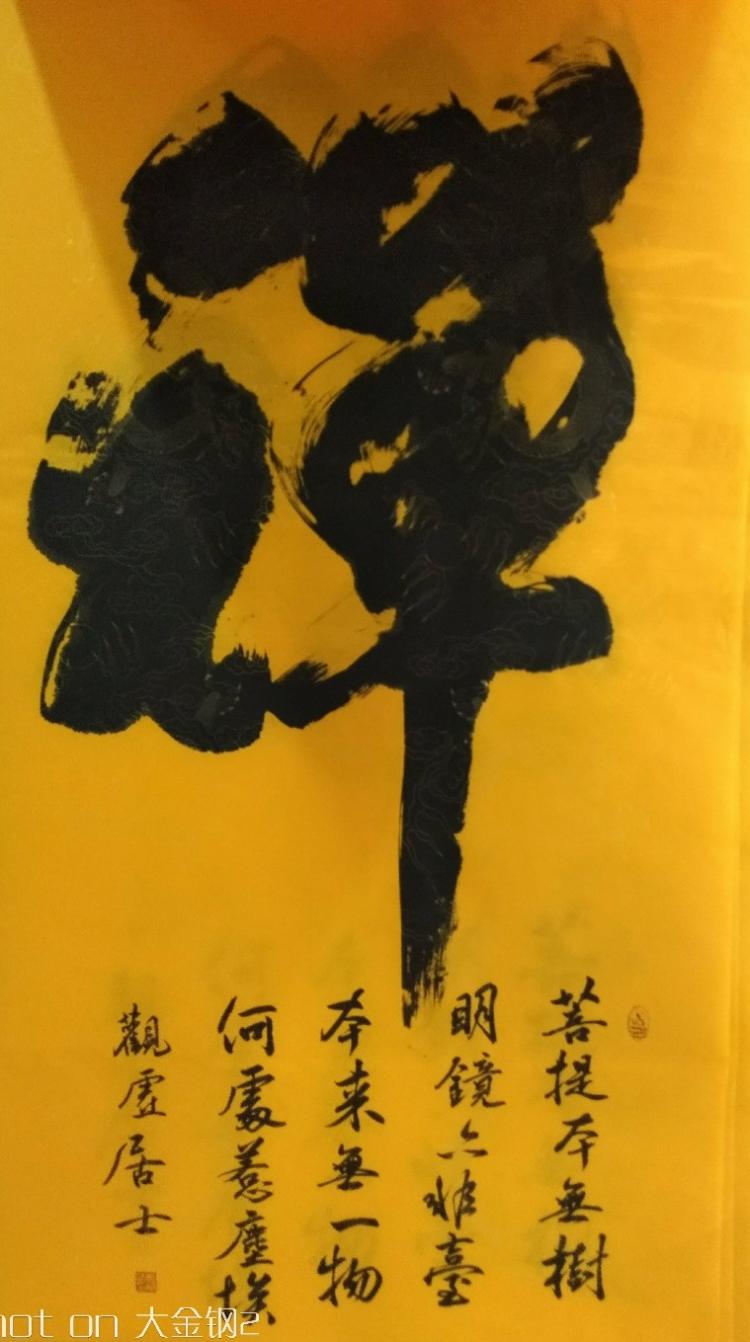 禪
菩提本無樹
明鏡亦非臺
本来無一物
何處惹塵埃
觀虛居士
hot on 大金钢2